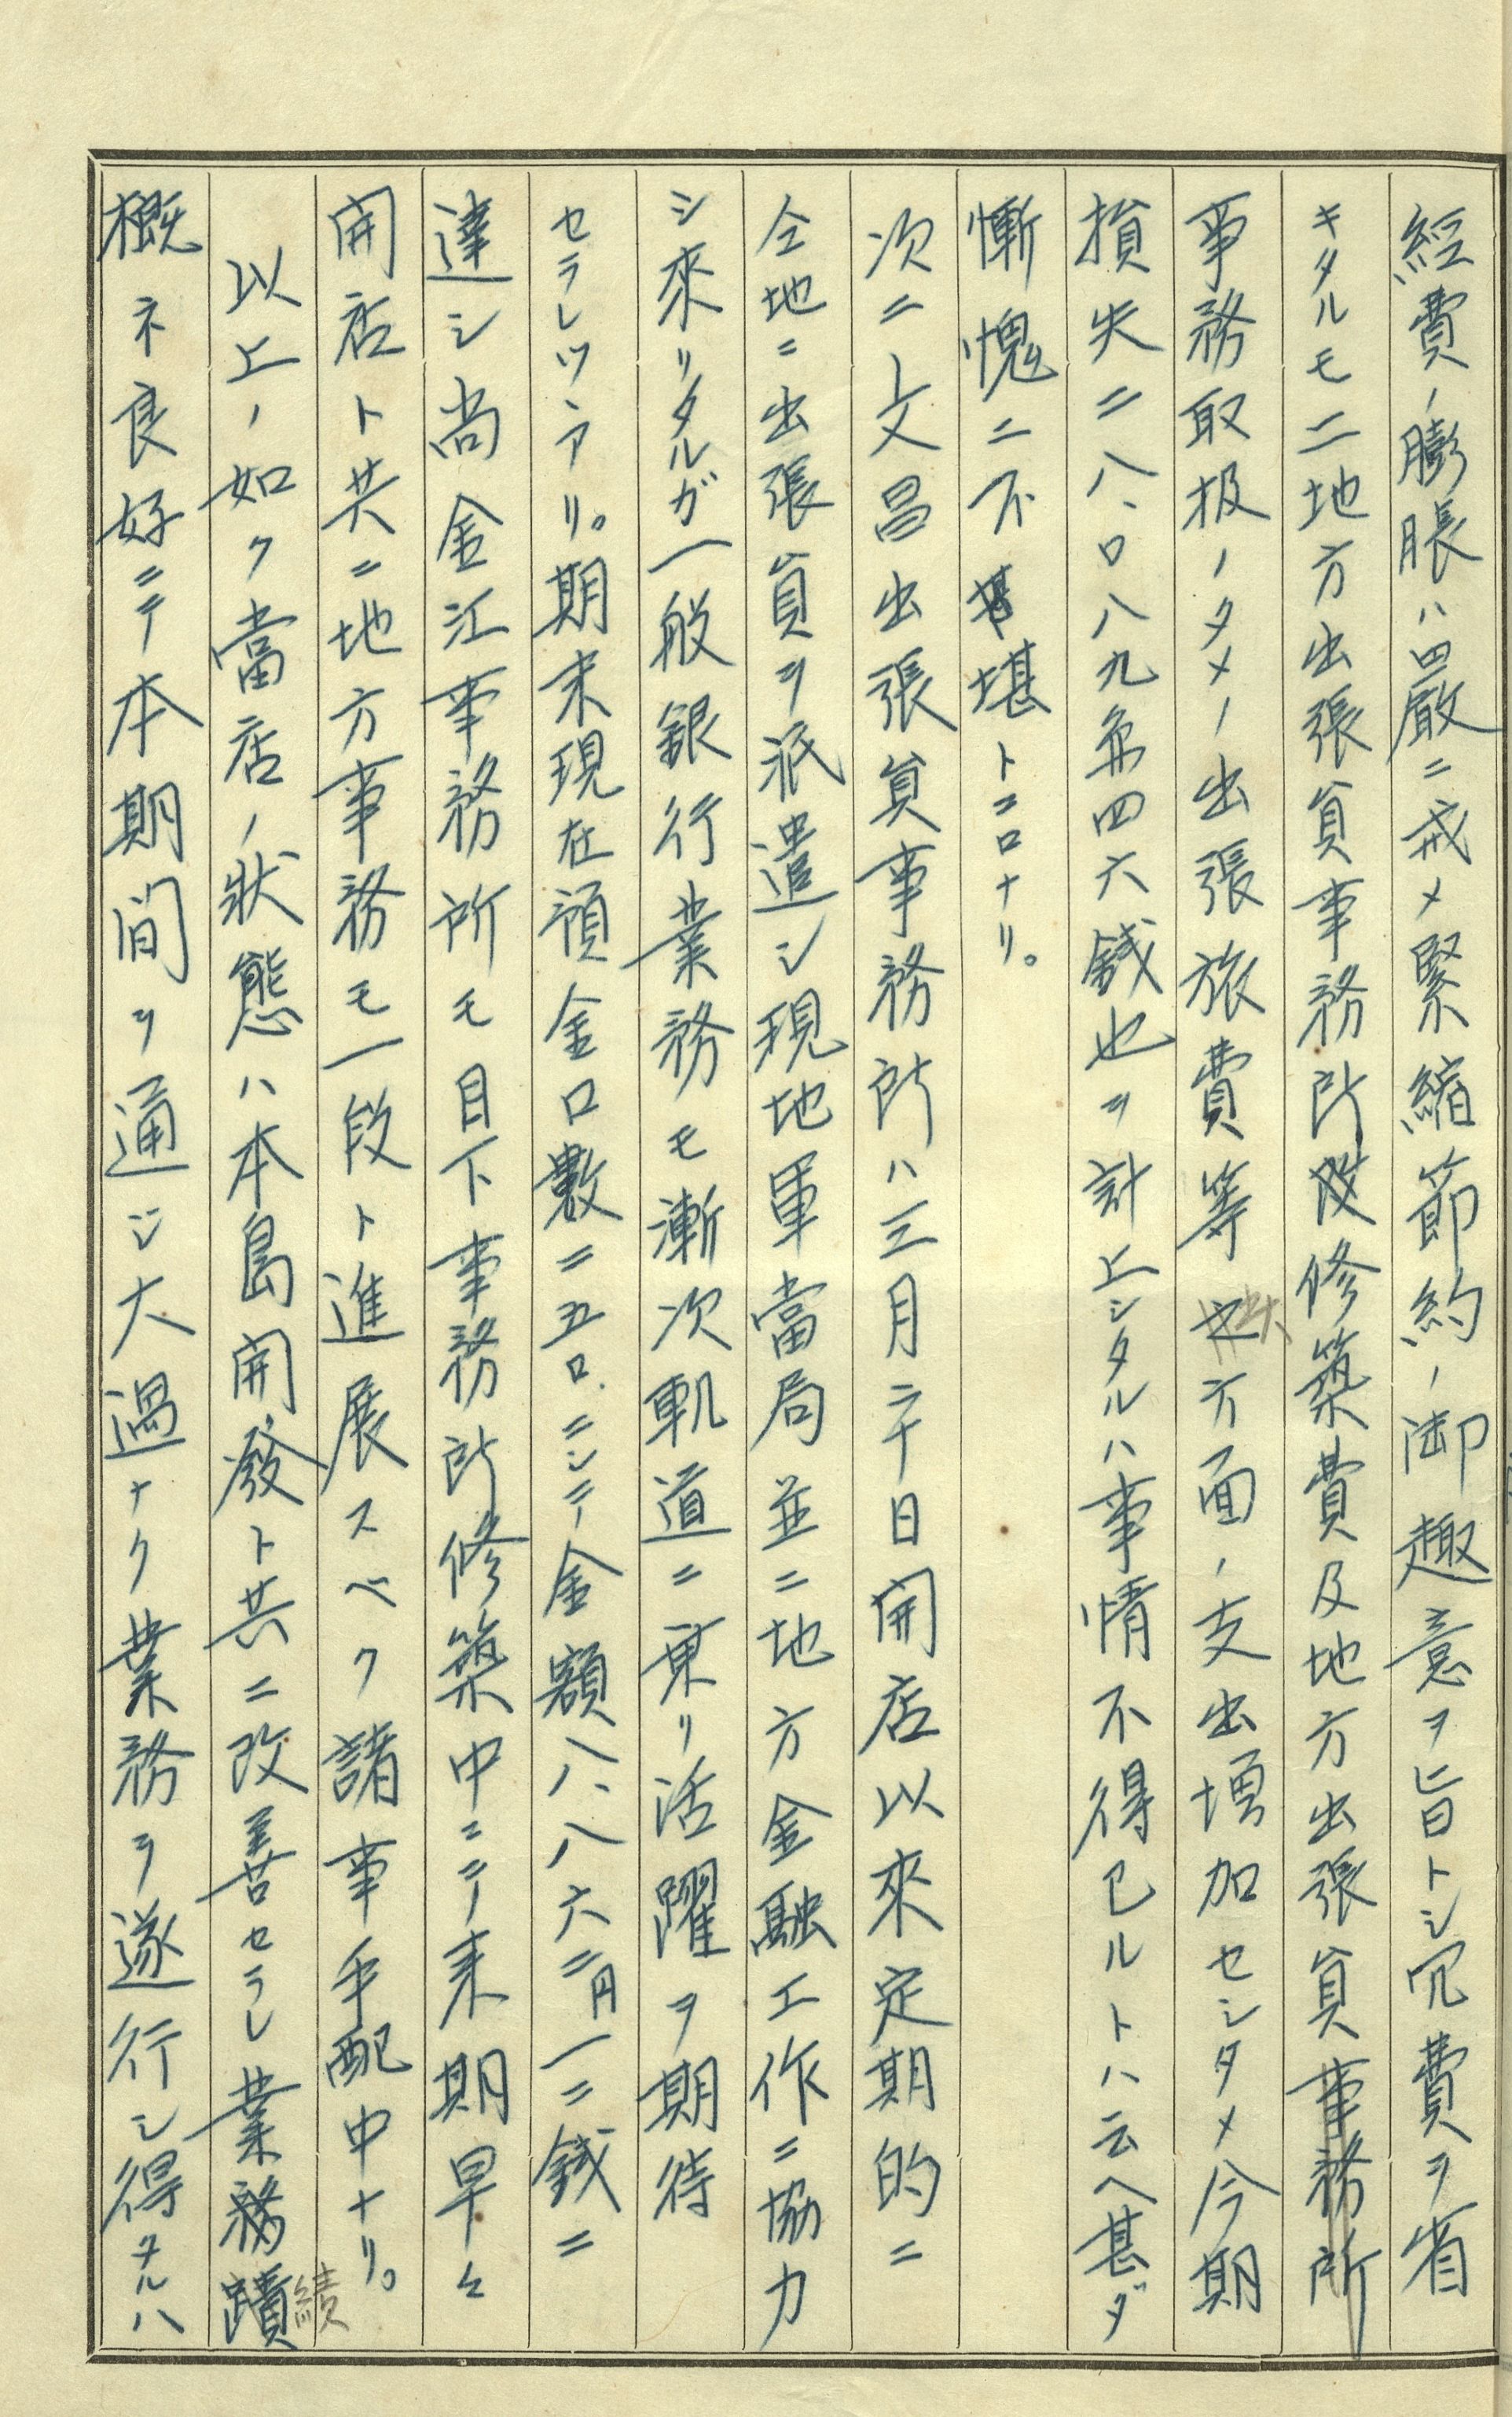 經費ノ膨脹ハ固嚴ニ戒メ緊縮節約ノ御趣意ヲ旨トシ冗費ヲ省
キタルモ二地方出張員事務所改修築費及地方出張員事務所
事務取扱ノタメノ出張旅費等地方方面ノ支出増加セシタメ今期
損失二八、〇八九円四六錢也ヲ計上シタルハ事情不得已ルトハ云ヘ甚ダ
慚愧ニ不堪トコロナリ。
次ニ文昌出張員事務所ハ三月二十日開店以來定期的ニ
仝地ニ出張員ヲ派遣シ現地軍當局並ニ地方金融工作ニ協力
シ來リタルガ一般銀行業務モ漸次軌道ニ乗リ活躍ヲ期待
セラレツヽアリ。期末現在預金口數二五口ニシテ金額八、八六二円一二錢ニ
達シ尚金江事務所モ目下事務所修築中ニテ来期早々
開店ト共ニ地方事務モ一段ト進展スベク諸事手配中ナリ。
以上ノ如ク當店ノ狀態ハ本島開發ト共ニ改善セラレ業務蹟績
概ネ良好ニテ本期間ヲ通ジ大過ナク業務ヲ遂行シ得タルハ